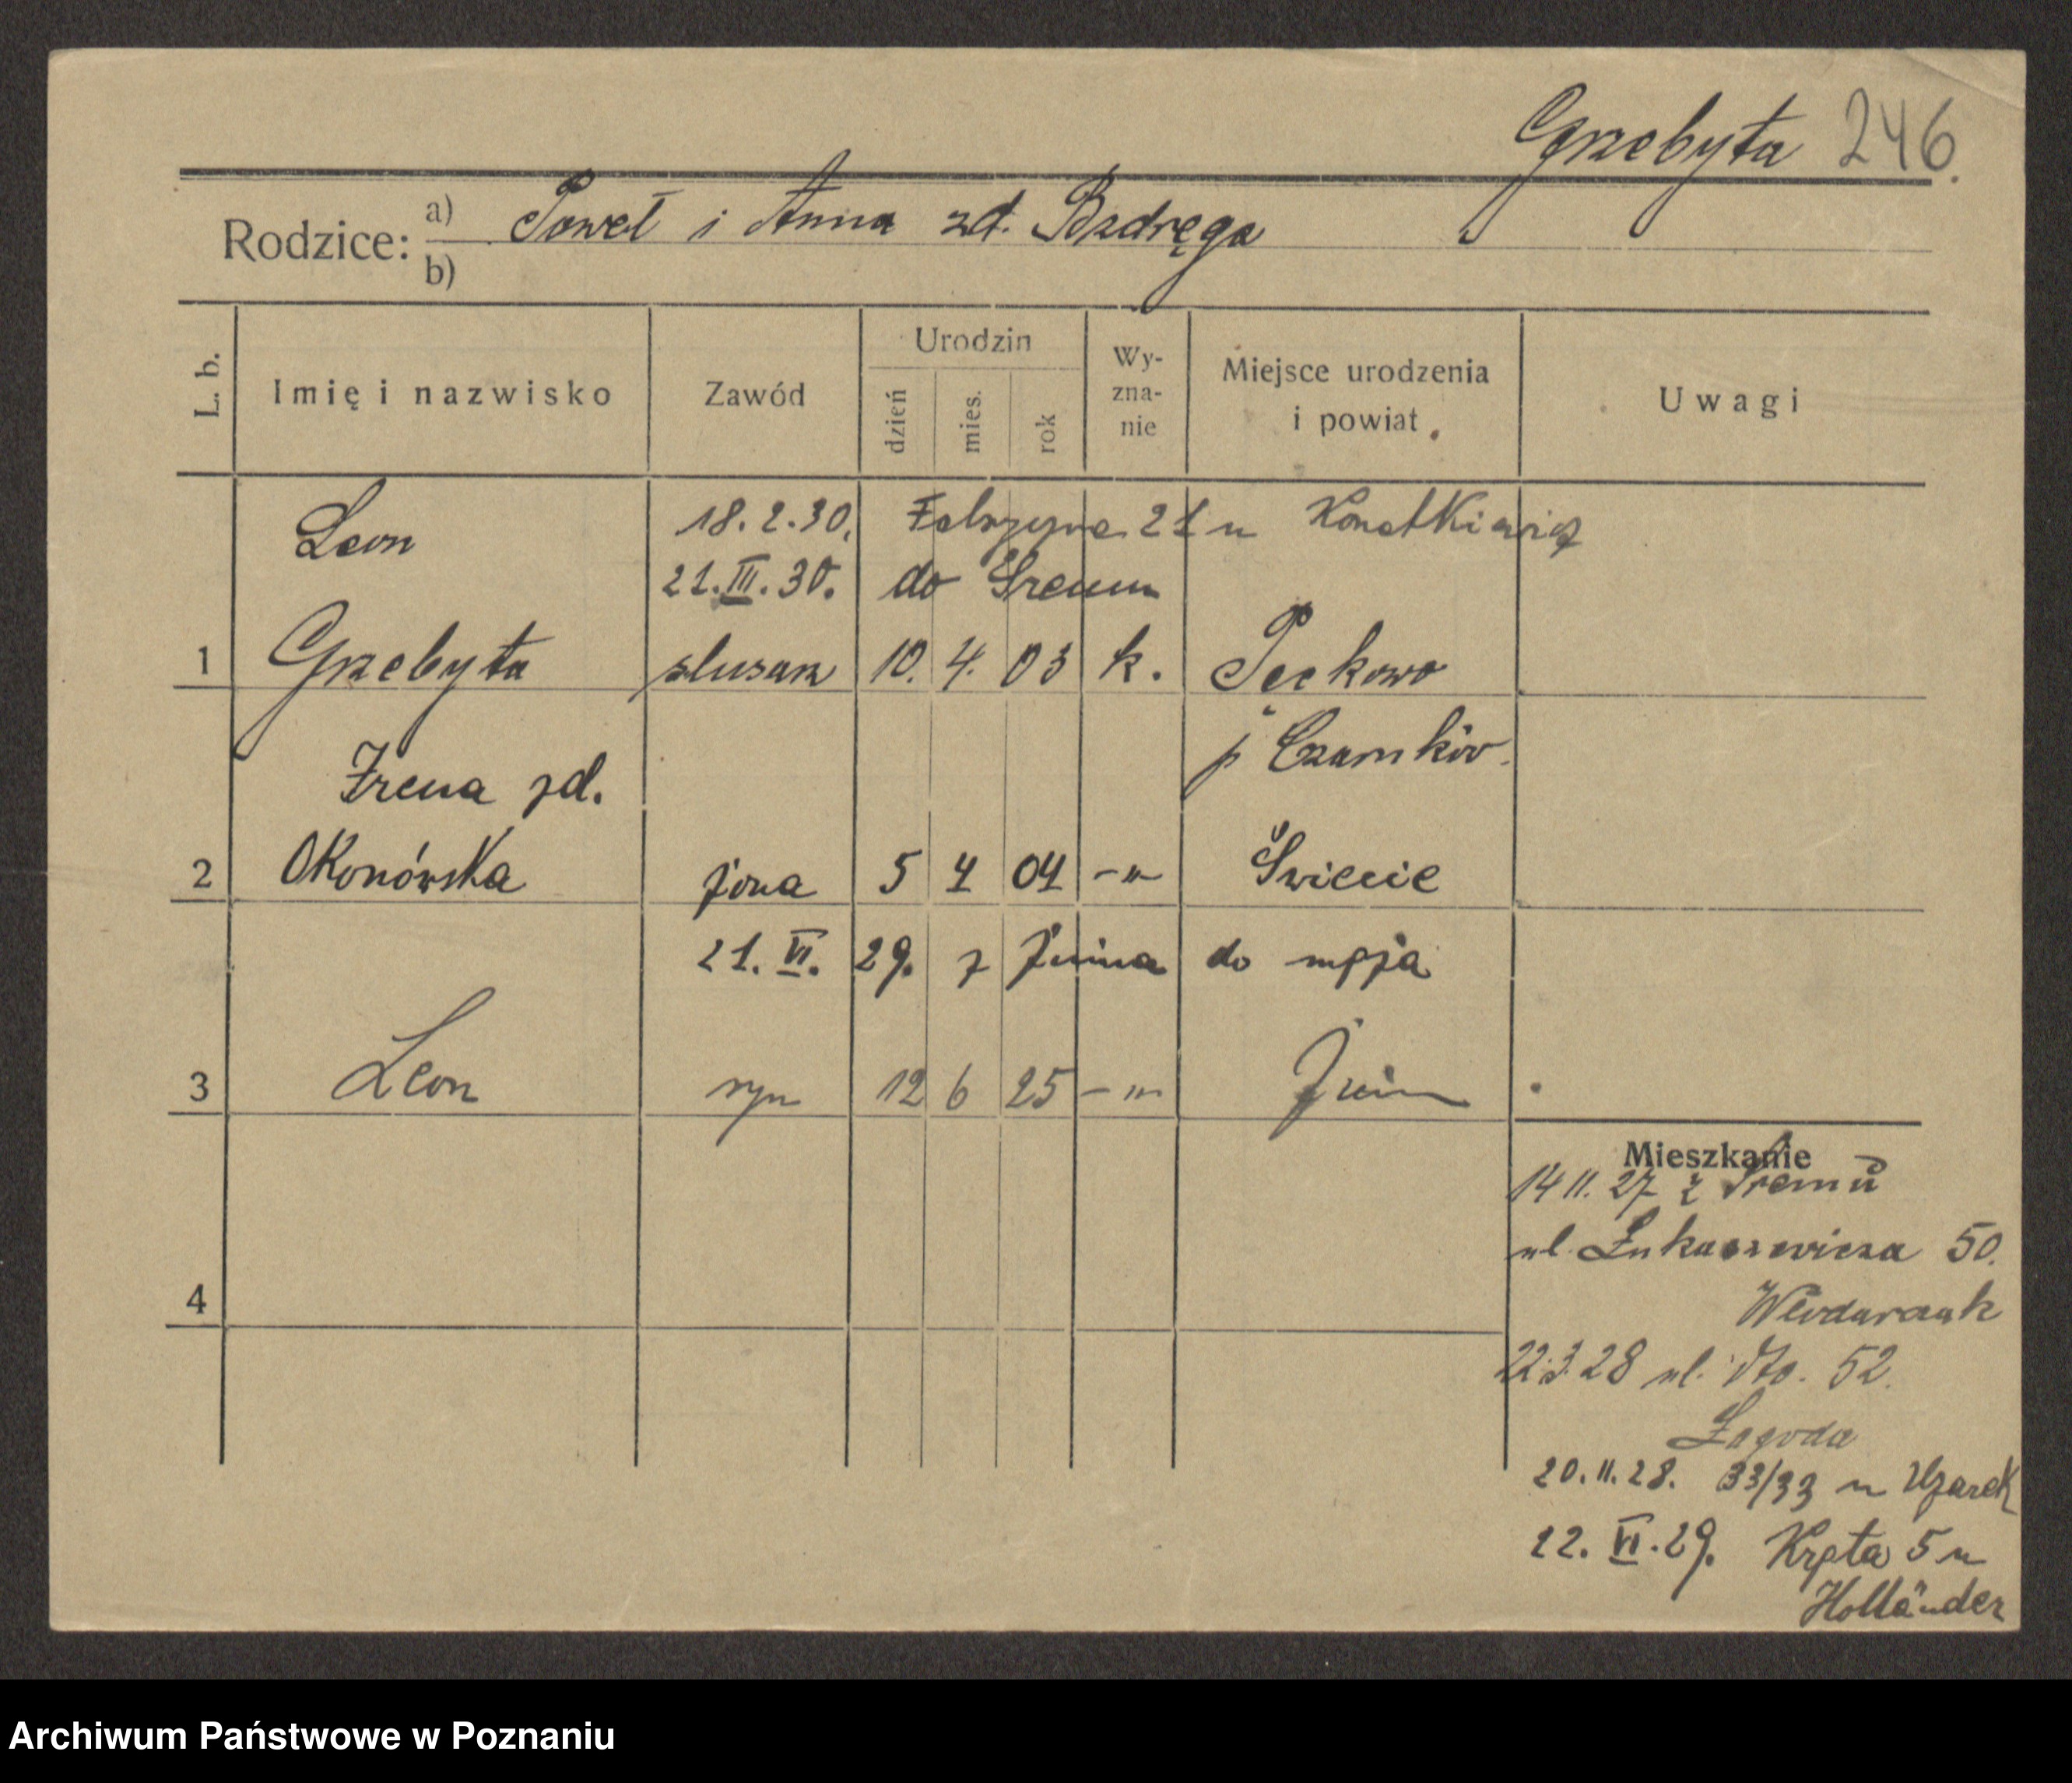 Grzebyta 246.
Rodzice: a) Paweł i Anna zd. Bzdręga
b)
L. b. Imię i nazwisko Zawód Urodzin dzień mies. rok Wy-zna-nie Miejsce urodzenia i powiat Uwagi
Leon 18.2.30. Fabryczna 21 u
21.III.30. do Śremu
1 Grzebyta ślusarz 10. 4. 03 k. Pęckowo
p Czarnków.
Irena zd.
2 Okonówska żona 5 4 04 -"- Świecie
21. VI. 29. z Żnina do męża
3 Leon syn 12 6 25 -"- Żnin
Mieszkanie
14 11. 27 z Śremu
ul. Łukaszewicza 50.
Włodarczak
4
22.3.28 ul. dto. 52.
Łagoda
20.11.28. 33/33 u Użarek
22. VI. 29. Kręta 5 u
Holländer
Archiwum Państwowe w Poznaniu